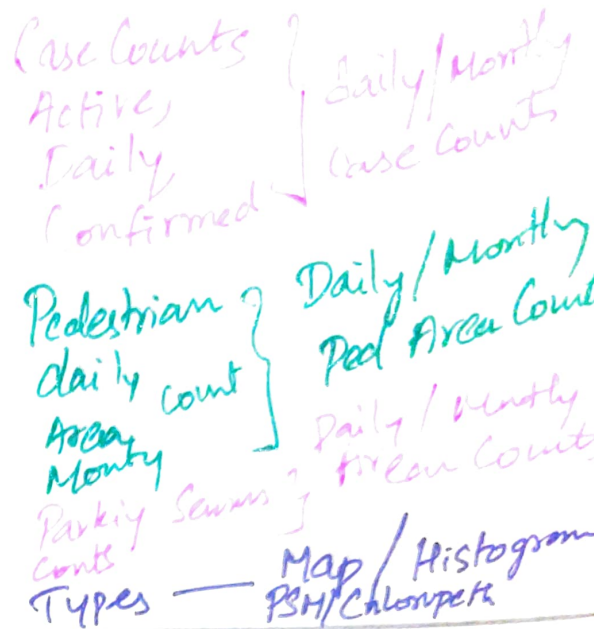 Case Counts
Active,
Daily,
Confirmed
Daily/Montly
Case Counts
Pedestrian
daily
count
Area,
Monty
Daily/Montly
Ped Area Count
Parkiy Sensors
conts
Daily/Montly
Area Counts
Types — Map/Histogram
PSM/Choropeth